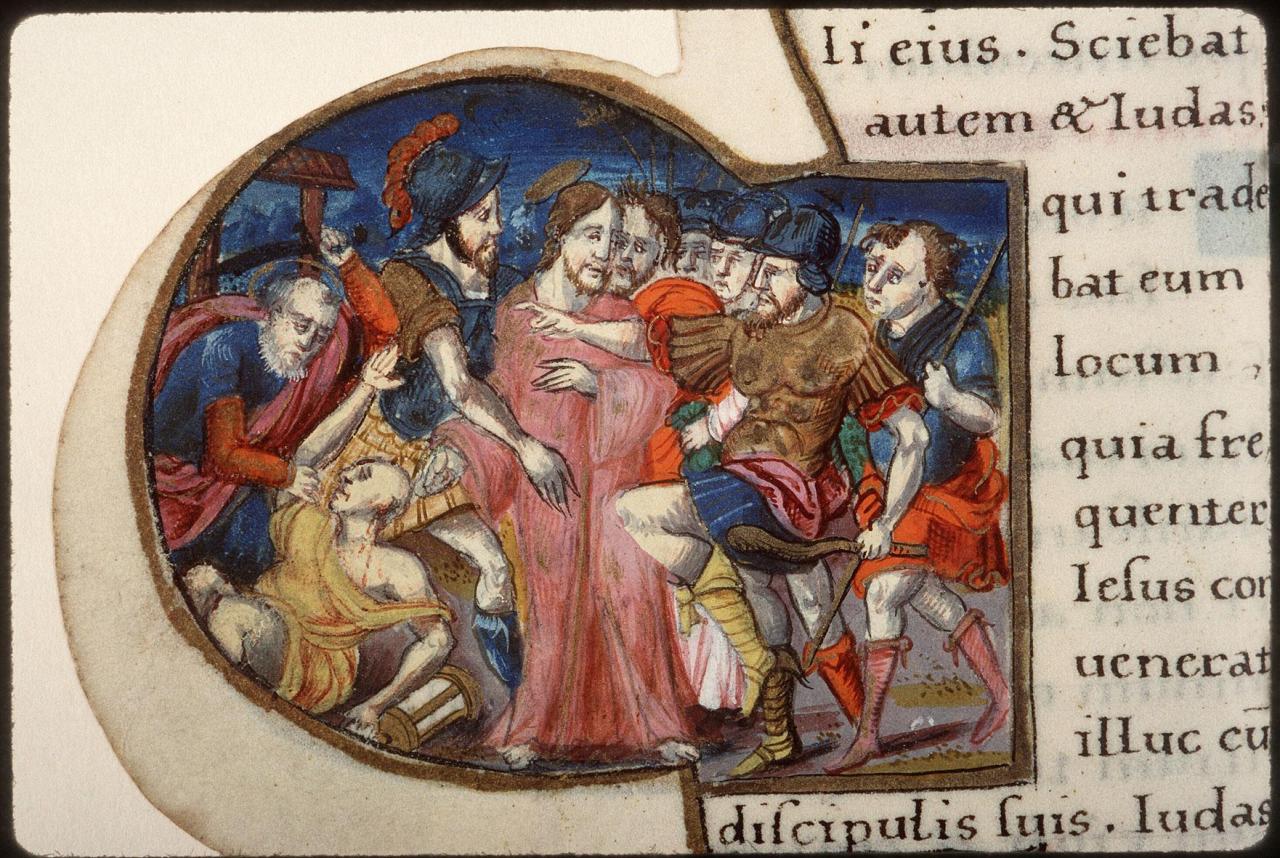 li eius . Sciebat
autem & Iudas
qui trade
bat eum
locum ,
quia fre
quenter
Ieſus con
uenerat
illuc cū
diſcipulis ſuis . Iudas